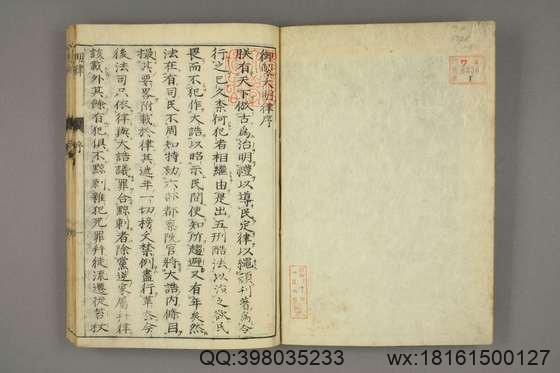 御製大明律序
朕有天下倣古為治明禮以導民定律以繩頑刊著為令
行之已久奈何犯者相繼由是出五刑酷法以治之欲民
畏而不犯作大誥以昭示民間使知所趨避又有年矣然
法在有司民不周知特勑六部都察院官將大誥內條目
撮其要略附載於律其遞年一切榜文禁例盡行革去今
後法司只依律與大誥議罪合黥刺者除黨逆家屬幷律
該載外其餘有犯俱不黥刺雜犯死罪幷徒流遷徙笞杖
明律 序
QQ:398035233 wx:18161500127